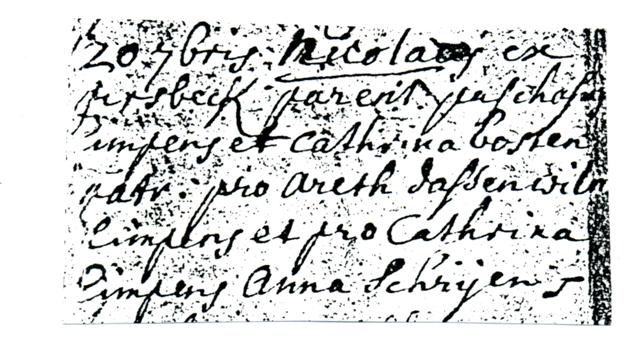 20 7bris Nicolaus ex
pirsbeck parent. paschasi
Limpens et Cathrina bosten
patr. pro areth daſsen wilm
Limpens et pro Cathrina
Limpens Anna Schrijens